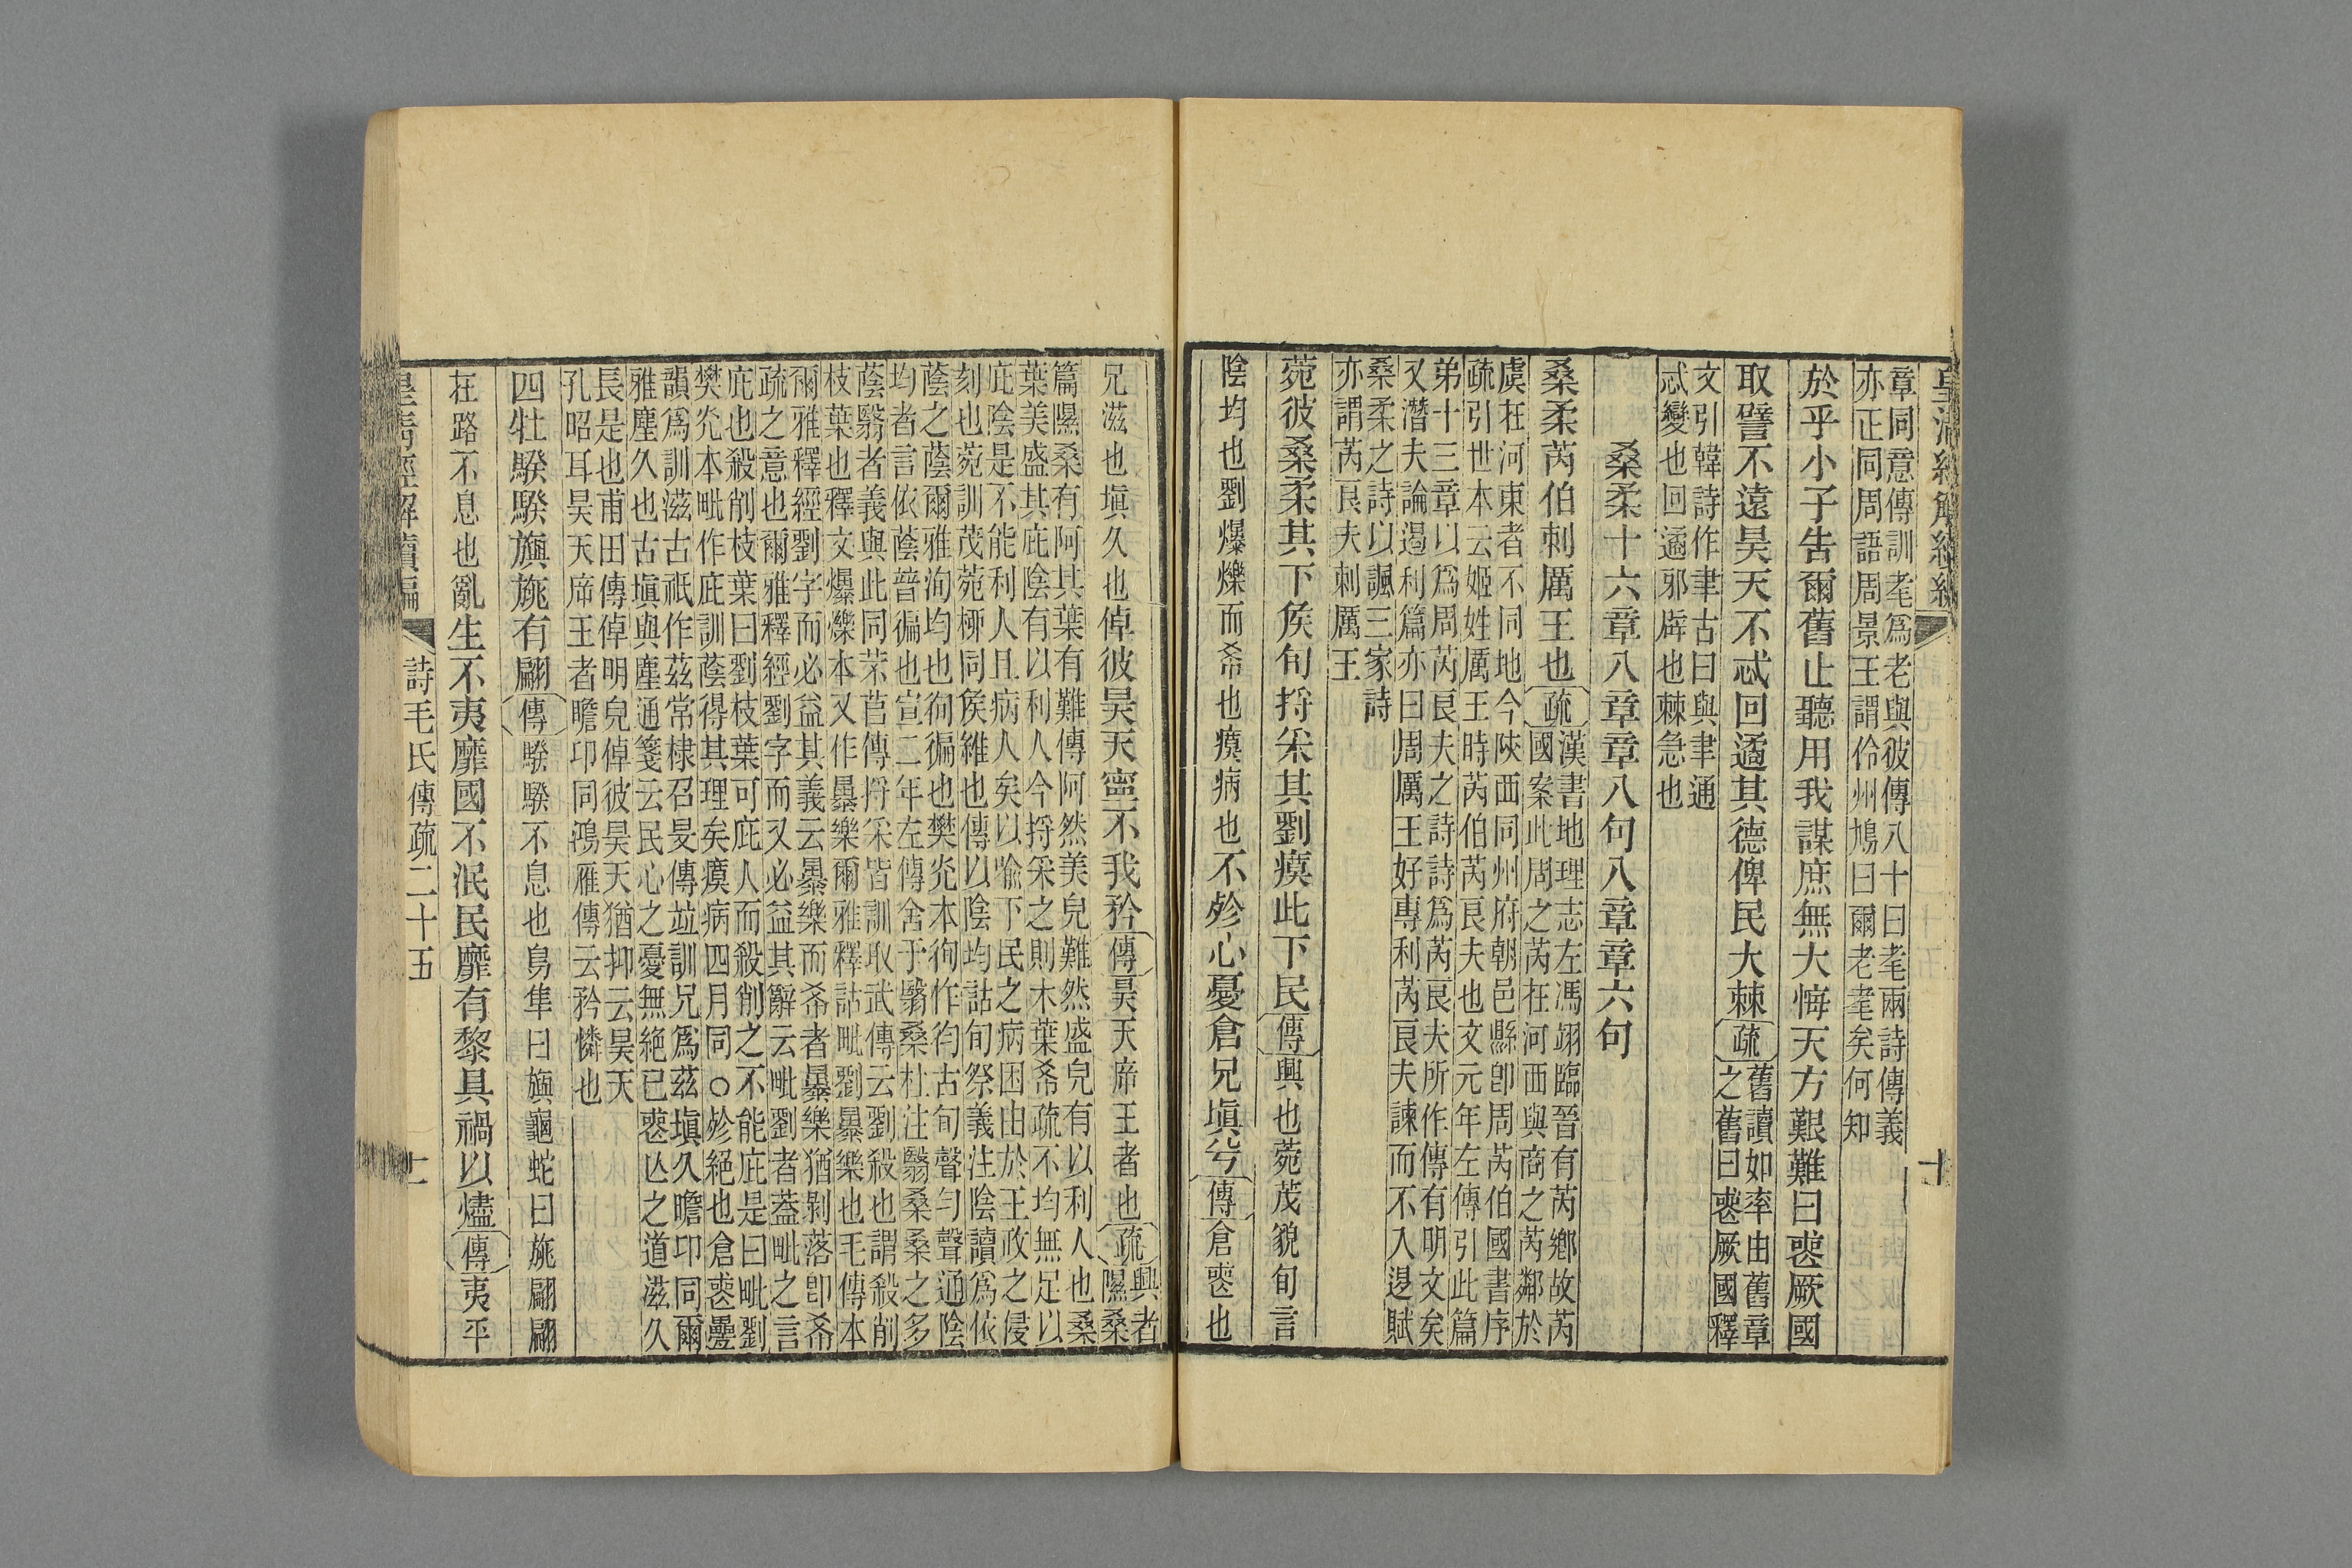 皇清經解續編
十
章同意傳訓耄爲老與彼傳八十曰耄兩詩傳義
亦正同周語周景王謂伶州鳩曰爾老耄矣何知
於乎小子告爾舊止聽用我謀庶無大悔天方艱難曰喪厥國
取譬不遠昊天不忒回遹其德俾民大棘
疏
舊讀如率由舊章
之舊曰喪厥國釋
文引韓詩作聿古曰與聿通
忒變也回遹邪辟也棘急也
桑柔十六章八章章八句八章章六句
桑柔芮伯刺厲王也
疏
漢書地理志左馮翊臨晉有芮鄉故芮
國案此周之芮在河西與商之芮鄰於
虞在河東者不同地今陝西同州府朝邑縣卽周芮伯國書序
疏引世本云姬姓厲王時芮伯芮良夫也文元年左傳引此篇
弟十三章以爲周芮良夫之詩詩爲芮良夫所作傳有明文矣
又潛夫論遏利篇亦曰周厲王好專利芮良夫諫而不入退賦
桑柔之詩以諷三家詩
亦謂芮良夫刺厲王
菀彼桑柔其下侯旬捋采其劉瘼此下民
傳
興也菀茂貌旬言
陰均也劉爆爍而希也瘼病也
不殄心憂倉兄塡兮
傳
倉喪也
兄滋也塡久也
倬彼昊天寧不我矜
傳
昊天席王者也
疏
興者
隰桑
篇隰桑有阿其葉有難傳阿然美皃難然盛皃有以利人也桑
葉美盛其庇陰有以利人今捋采之則木葉希疏不均無足以
庇陰是不能利人且病人矣以喩下民之病困由於王政之侵
刻也菀訓茂菀栁同侯維也傳以陰均詁旬祭義注陰讀爲依
蔭之蔭爾雅洵均也徇徧也樊光本徇作徇古旬聲勻聲通陰
均者言依蔭普徧也宣二年左傳舍于翳桑杜注翳桑桑之多
蔭翳者義與此同芣苢傳捋采皆訓取武傳云劉殺也謂殺削
枝葉也釋文爆爍本又作暴樂爾雅釋詁毗劉暴樂也毛傳本
爾雅釋經劉字而必益其義云暴樂而希者暴樂猶剝落卽希
疏之意也爾雅釋經劉字而又必益其辭云毗劉者蓋毗之言
庇也殺削枝葉曰劉枝葉可庇人而殺削之不能庇是曰毗劉
樊光本毗作庇訓蔭得其理矣瘼病四月同〇殄絕也倉喪曡
韻爲訓滋古衹作茲常棣召旻傳竝訓兄爲茲塡久瞻卬同爾
雅塵久也古塡與塵通箋云民心之憂無絕已喪亾之道滋久
長是也甫田傳倬明皃倬彼昊天猶抑云昊天
孔昭耳昊天席王者瞻卬同鴻雁傳云矜憐也
四牡騤騤旟旐有翩
傳
騤騤不息也鳥隼曰旟龜蛇曰旐翩翩
在路不息也
亂生不夷靡國不泯民靡有黎具禍以燼
傳
夷平
皇清經解續編
詩毛氏傳疏二十五